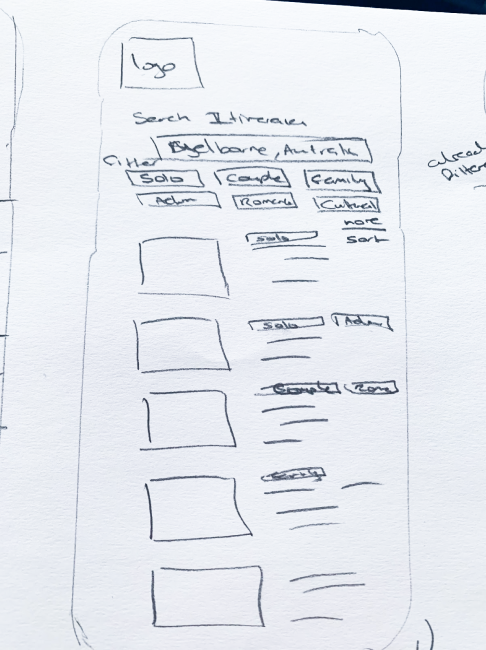 logo
Serch Itineraries
Melbourne, Australia
Filter
Solo Couple Family
Adm Romanc Cultural
more
sort
Solo
Solo Adm
Couple Rom
Family
already